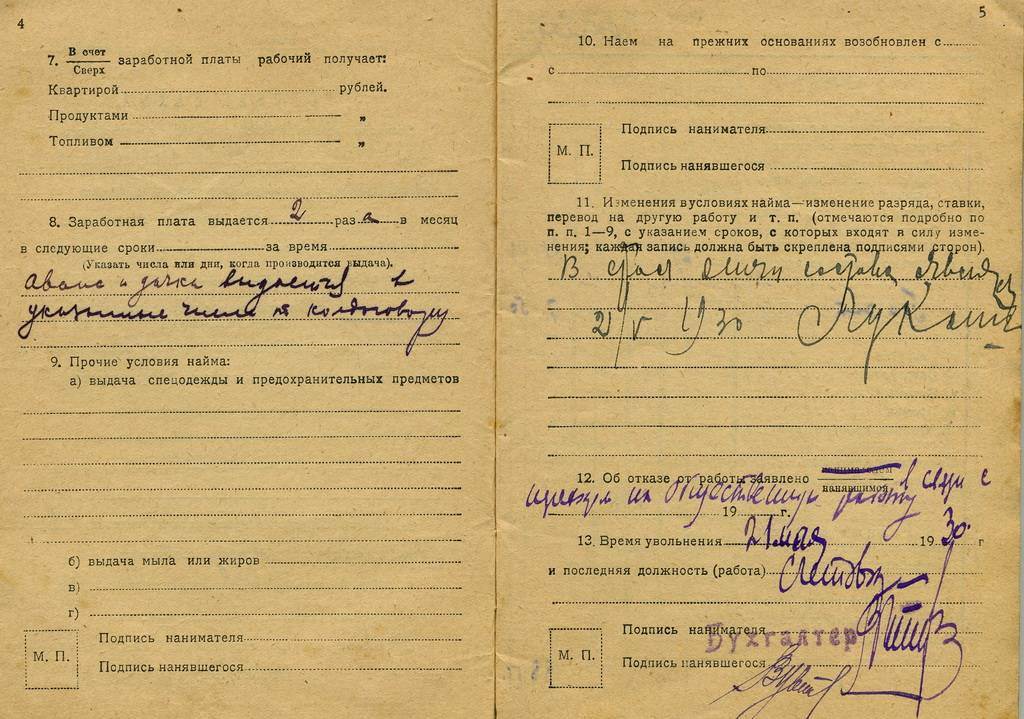 4
7. В счет
Сверх заработной платы рабочий получает:
Квартирой рублей.
Продуктами "
Топливом "
8. Заработная плата выдается 2 раз а в месяц
в следующие сроки за время
(Указать числа или дни, когда производится выдача).
аванс и дачка выдается в
указанные числа по колдоговору
9. Прочие условия найма:
а) выдача спецодежды и предохранительных предметов
б) выдача мыла или жиров
в)
г)
М. П.
Подпись нанимателя
Подпись нанявшегося
5
10. Наем на прежних основаниях возобновлен с
с по
М. П.
Подпись нанимателя
Подпись нанявшегося
11. Изменения в условиях найма—изменение разряда, ставки,
перевод на другую работу и т. п. (отмечаются подробно по
п. п. 1—9, с указанием сроков, с которых входят в силу изме-
нения; каждая запись должна быть скреплена подписями сторон).
В состава
21/V 1930
12. Об отказе от работы заявлено нанимателем
нанявшимся в связи с
на общественную работу
19 г.
13. Время увольнения 21 мая 1930 г
и последняя должность (работа)
М. П.
Подпись нанимателя
Бухгалтер
Подпись нанявшегося